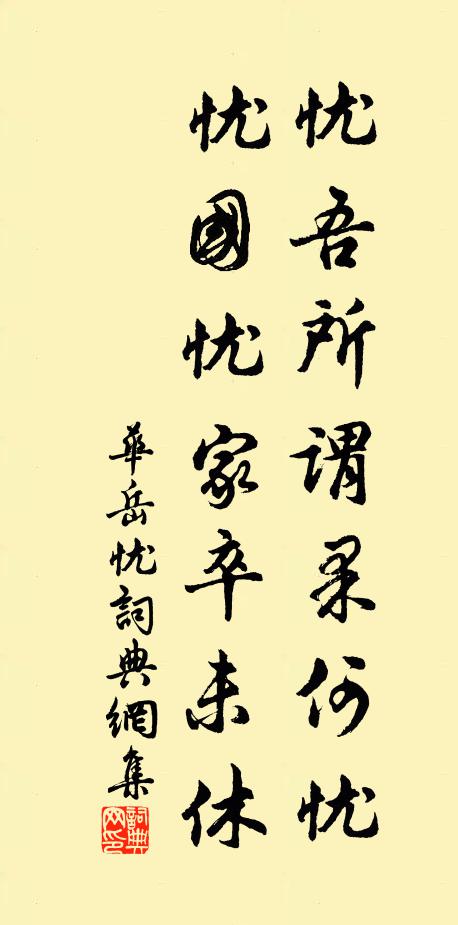 忧吾所谓果何忧
忧國忧家卒未休
華岳忧詞典網集
詞典网印